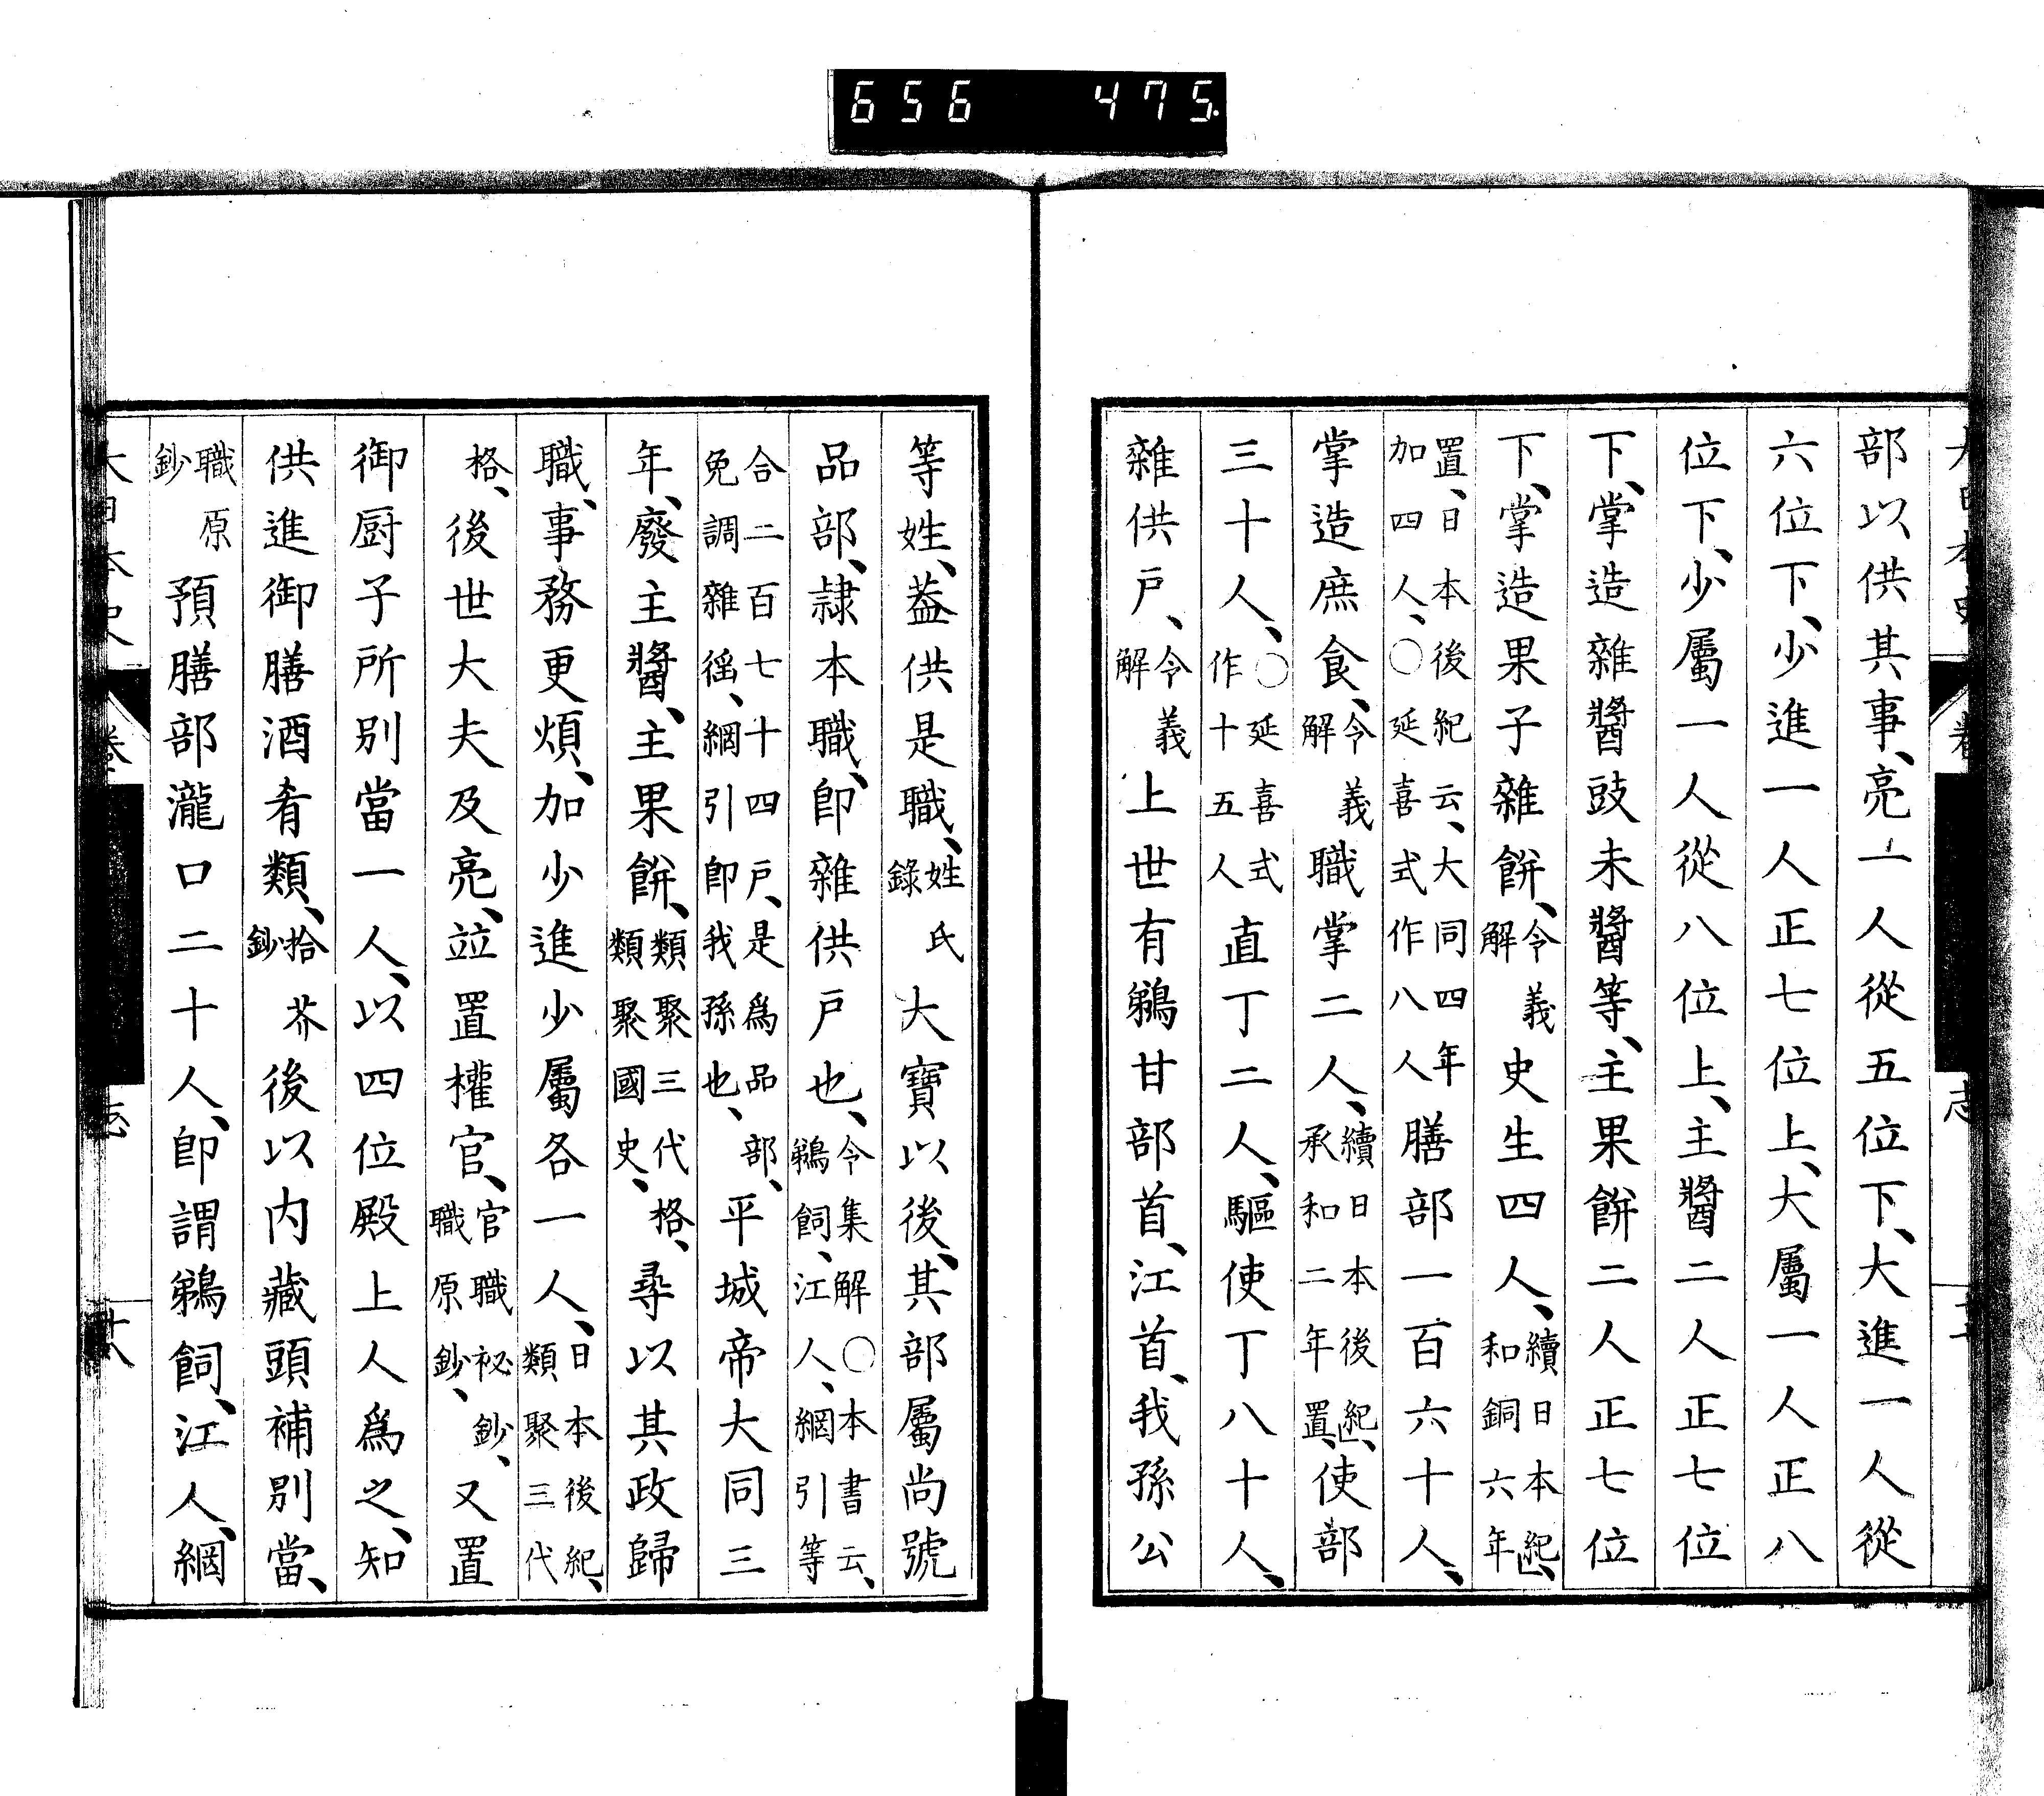 656 475.
部以供其事、亮一人從五位下、大進一人從
六位下、少進一人正七位上、大屬一人正八
位下、少屬一人從八位上、主醬二人正七位
下、掌造雜醬豉未醬等、主果餅二人正七位
下、掌造果子雜餅、令義解史生四人、續日本紀、和銅六年
置、日本後紀云、大同四年加四人、○延喜式作八人膳部一百六十人、
掌造庶食、令義解職掌二人、續日本後紀、承和二年置、使部
三十人、○延喜式作十五人直丁二人、驅使丁八十人、
雜供戸、令義解上世有鵜甘部首、江首、我孫公
等姓、蓋供是職、姓氏錄大寶以後、其部屬尚號
品部、隷本職、卽雜供戸也、令集解○本書云、鵜飼、江人、網引等
合二百七十四戸、是爲品部、免調雜徭、網引卽我孫也、平城帝大同三
年、廢主醬、主果餅、類聚三代格、類聚國史、尋以其政歸
職、事務更煩、加少進少屬各一人、日本後紀、類聚三代
格、後世大夫及亮、竝置權官、官職祕鈔、職原鈔、又置
御厨子所別當一人、以四位殿上人爲之、知
供進御膳酒肴類、拾芥鈔後以内藏頭補別當、
職原鈔預膳部瀧口二十人、卽謂鵜飼、江人、網
大日本史
志